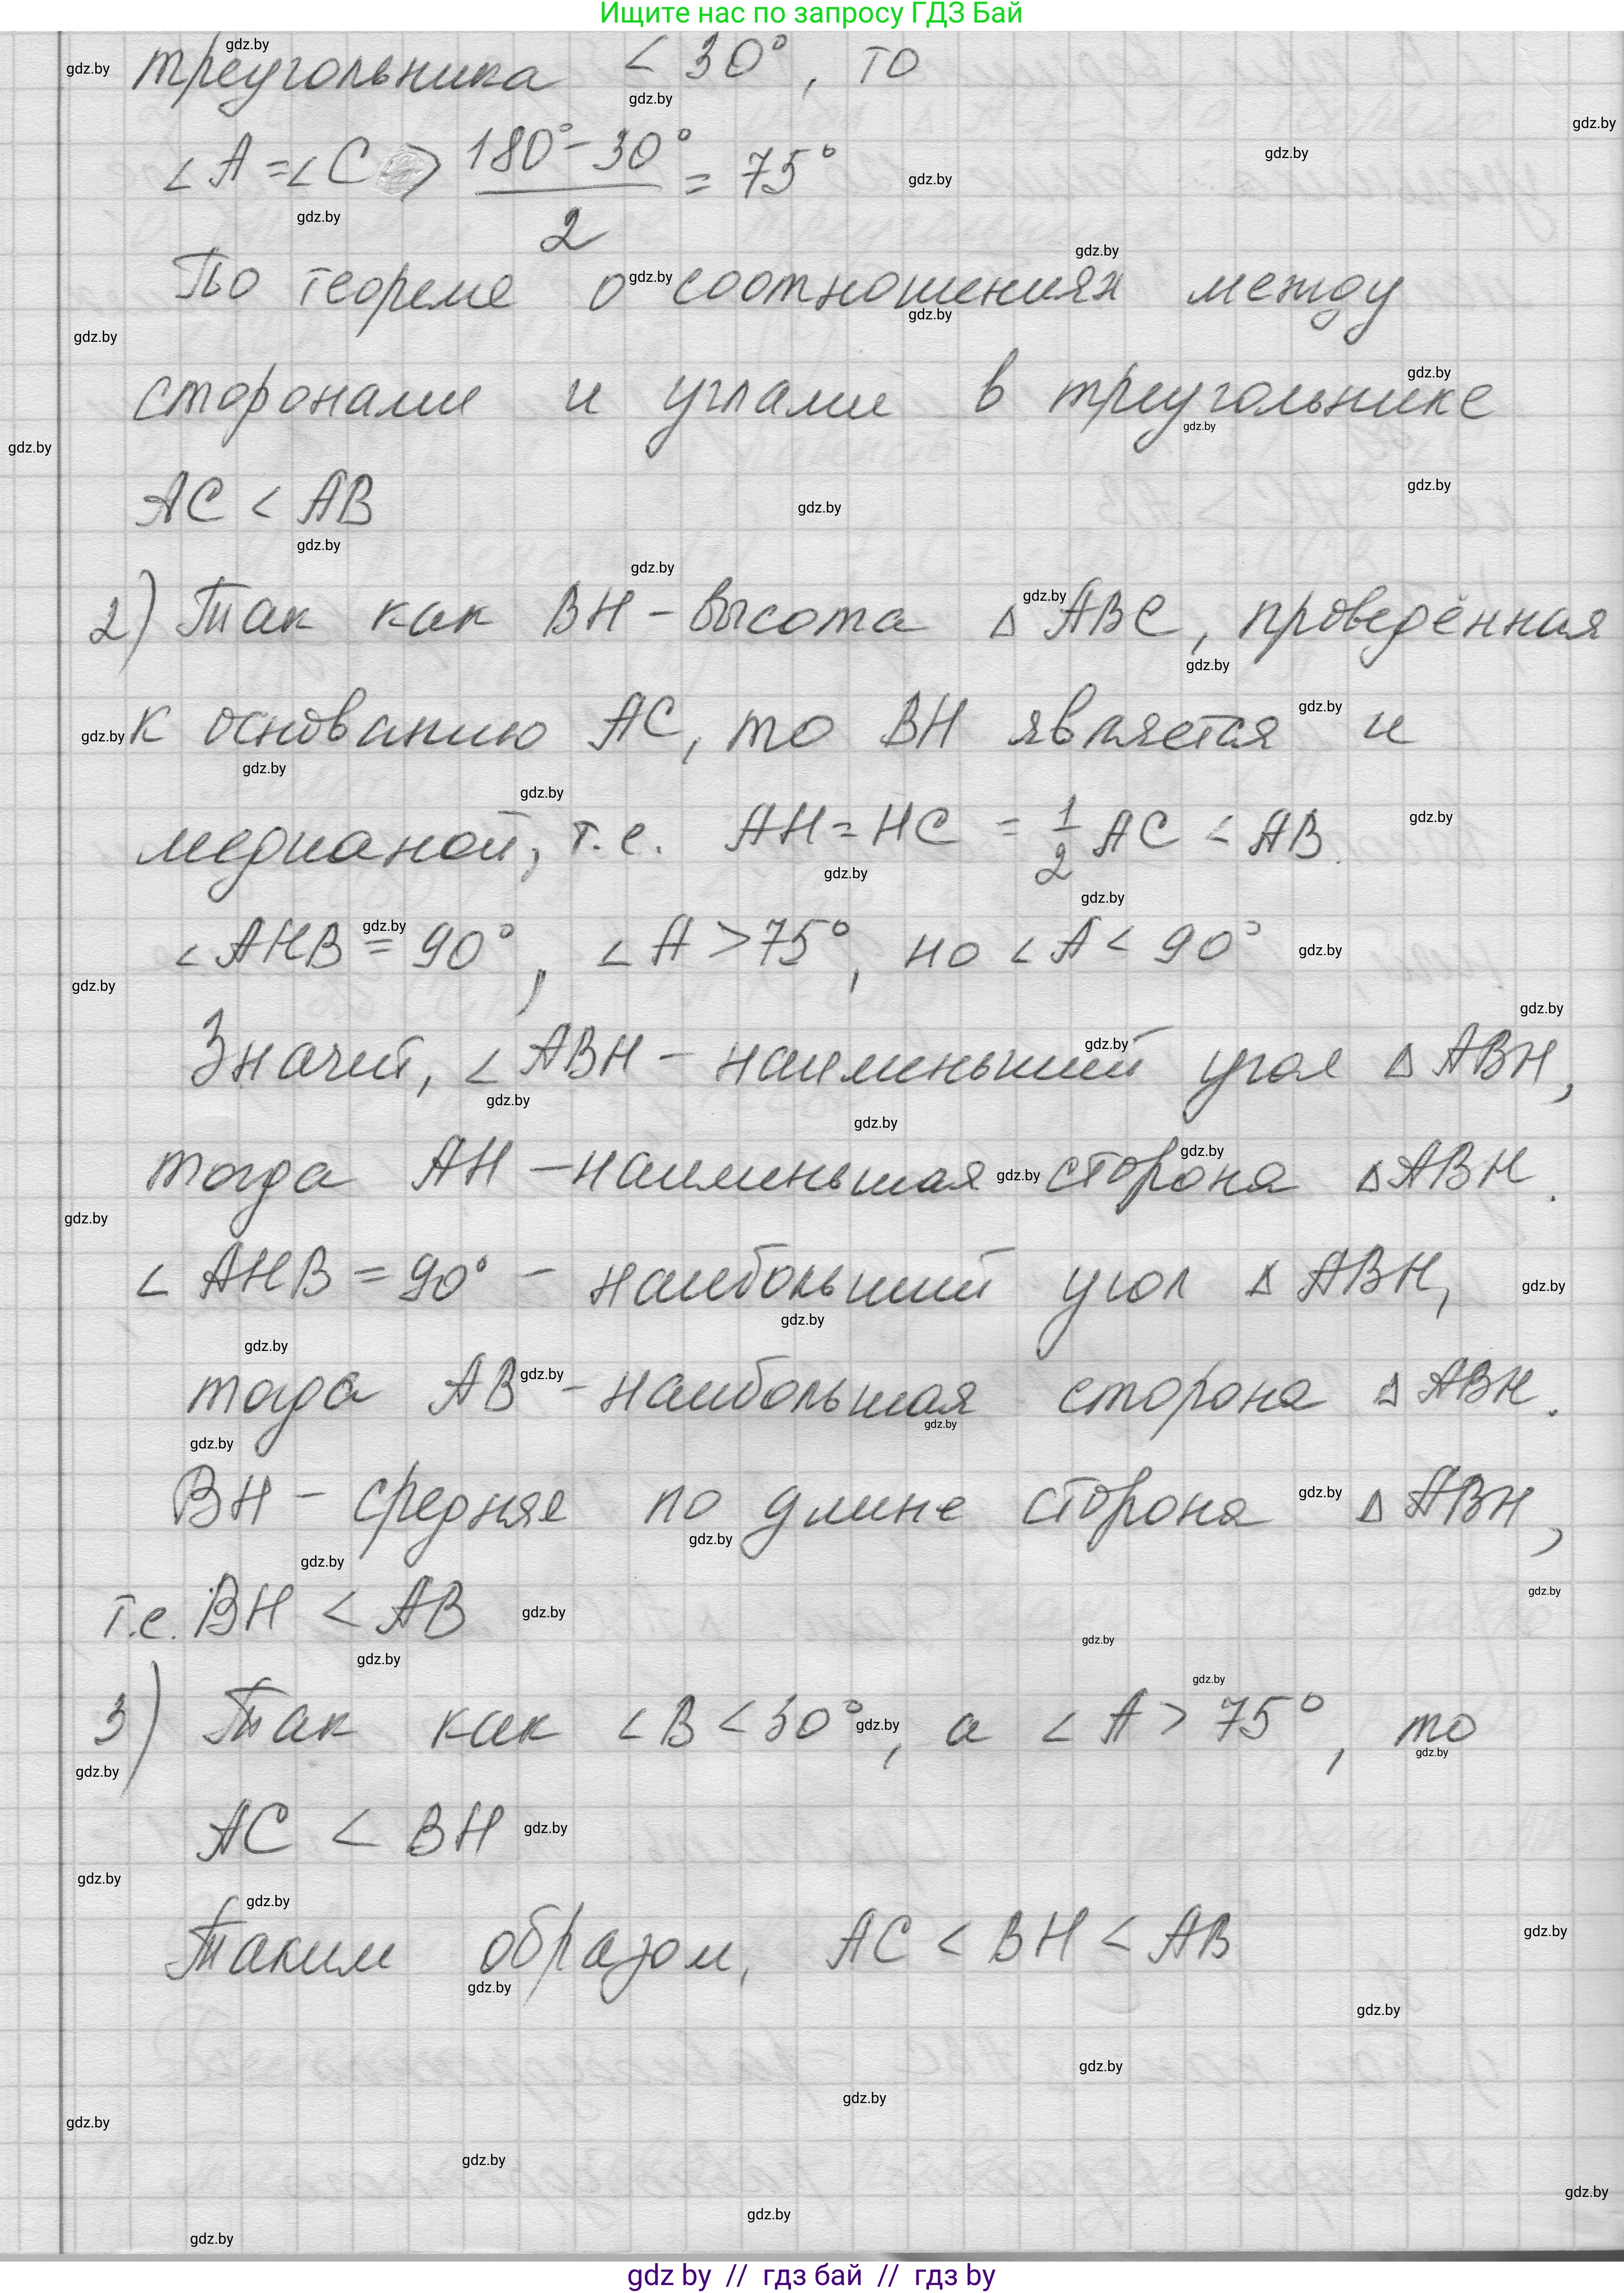 Ищите нас по запросу ГДЗ Бай
треугольника < 30°, то
∠A = ∠C > (180° − 30°)/2 = 75°
По теореме о соотношениях между
сторонами и углами в треугольнике
AC < AB
2) Так как BH – высота △ ABC, проведённая
к основанию AC, то BH является и
медианой, т.е. AH = HC = 1/2 AC < AB.
∠AHB = 90°, ∠A > 75°, но ∠A < 90°
Значит, ∠ABH – наименьший угол △ ABH,
тогда AH – наименьшая сторона △ABH.
∠AHB = 90° – наибольший угол △ ABH,
тогда AB – наибольшая сторона △ ABH.
BH – средняя по длине сторона △ ABH,
т.е. BH < AB
3) Так как ∠B < 30°, а ∠A > 75°, то
AC < BH
Таким образом, AC < BH < AB
gdz by // гдз бай // гдз by